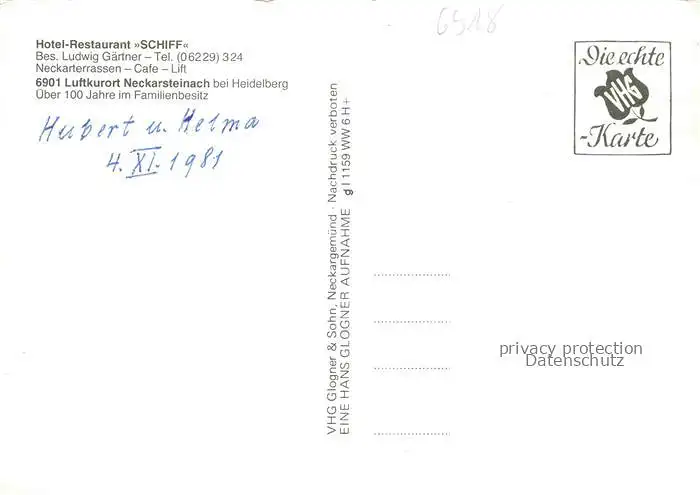 6518
Hotel-Restaurant »SCHIFF«
Bes. Ludwig Gärtner – Tel. (06229) 324
Neckarterrassen – Cafe – Lift
6901 Luftkurort Neckarsteinach bei Heidelberg
Über 100 Jahre im Familienbesitz
Hubert u. Helma
4. XI. 1981
VHG Glogner & Sohn, Neckargemünd · Nachdruck verboten
EINE HANS GLOGNER AUFNAHME g l 1159 WW 6 H+
Die echte
VHG
-Karte
privacy protection
Datenschutz